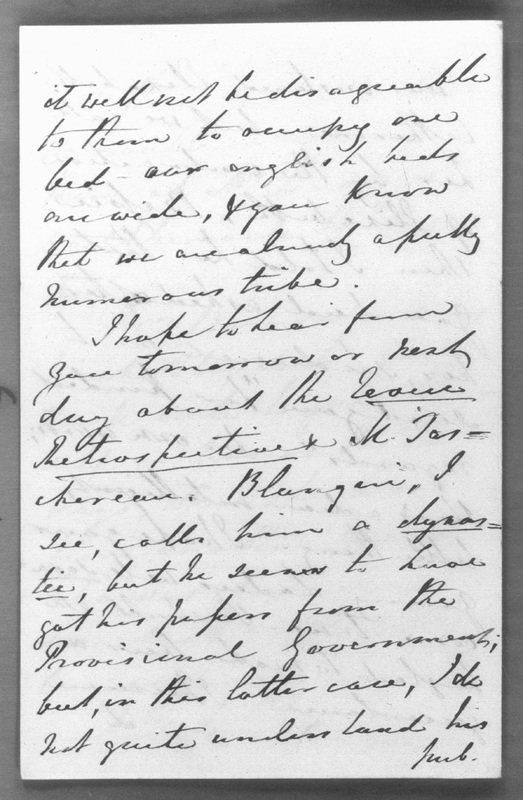 it will not be disagreeable
to them to occupy one
bed - our english beds
are wide, & you know
that we are already a pretty
numerous tribe.
I hope to hear from
you tomorrow or next
day about the Revue
Retrospective & M. Tas=
chereau. Blanqui, I
see, calls him a dynas=
tie, but he seems to have
got his papers from the
Provisional Government;
but, in this latter case, I do
not quite understand his
pub.